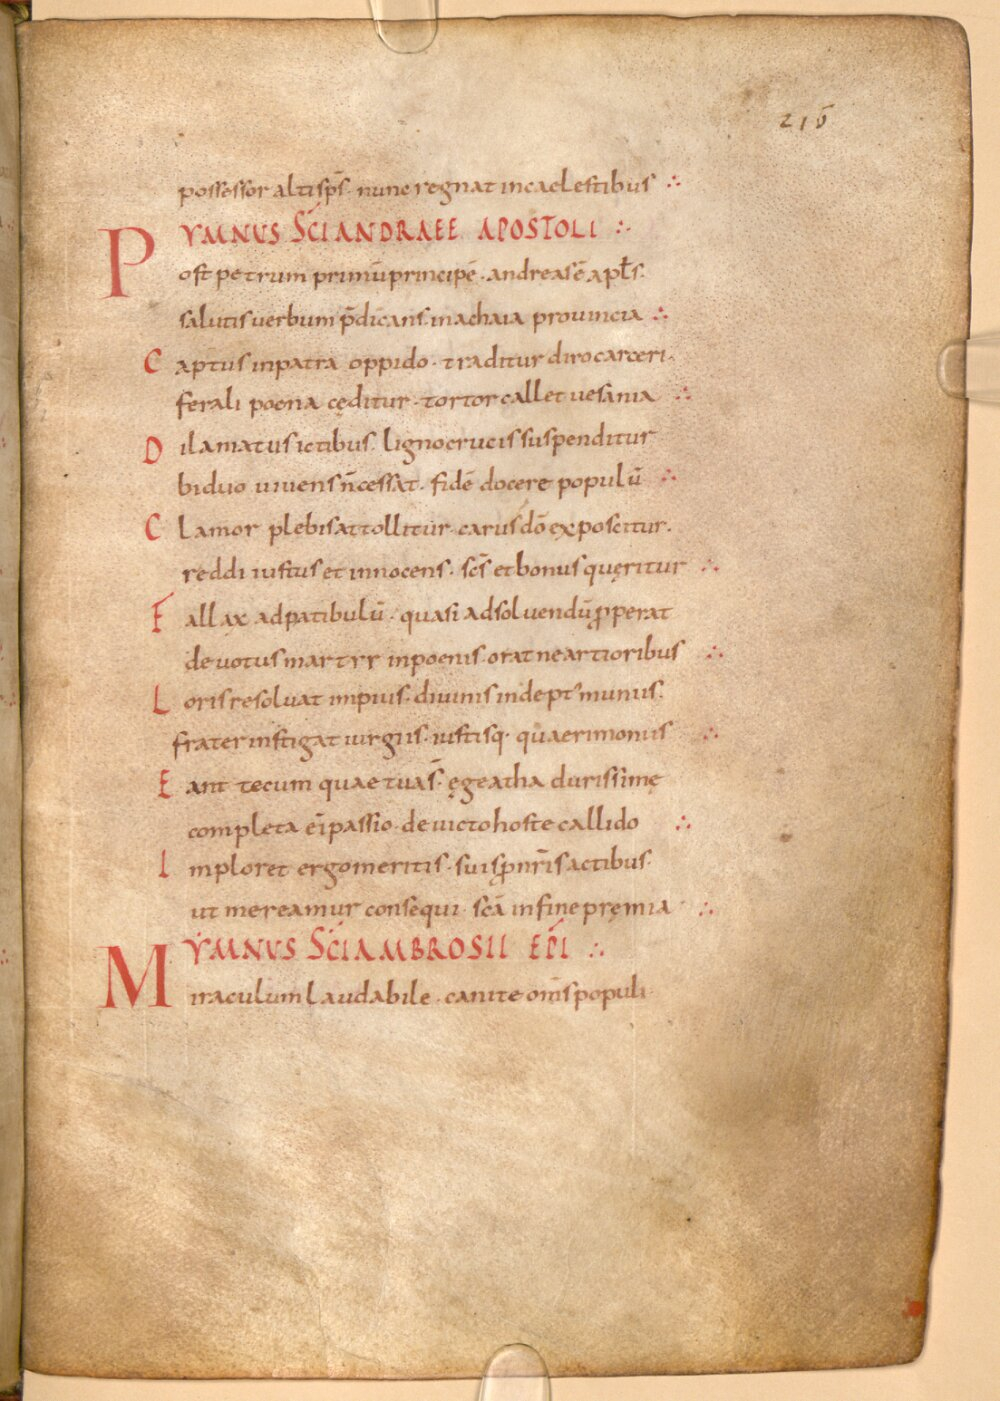 216
possessor altisp̄s· nunc regnat in caelestibus ∴
YMNUS SC̄I ANDRAEE APOSTOLI ∴
Post petrum primū principē· andreas ē apl̄s·
salutis verbum p̄dicans· in achaia prouincia ∴
Captus in patra oppido· traditur diro carceri·
ferali poena cęditur· tortor callet uesania ∴
Dilamatus ictibus· ligno crucis suspenditur
biduo uiuens n̄ cessat· fidē docere populū ∴
Clamor plebis attollitur· carus dō exposcitur·
reddi iustus et innocens· sc̄s et bonus quęritur ∴
Fallax ad patibulū· quasi adsoluendū ꝓperat
deuotus martyr in poenis· orat ne artioribus ∴
Loris resoluat impius· diuinis indept' munus·
frater instigat uirgiis· iustisq· quaerimoniis ∴
Eant tecum quae tua s̄· ęgeatha durissimę
completa ē īpassio· deuicto hoste callido ∴
Imploret ergo meritis· suis ꝓ nr̄is actibus·
ut mereamur consequi· sc̄a in fine pręmia ∴
YMNUS SC̄I AMBROSII EP̄I ∴
Miraculum laudabile· canite om̄s populi